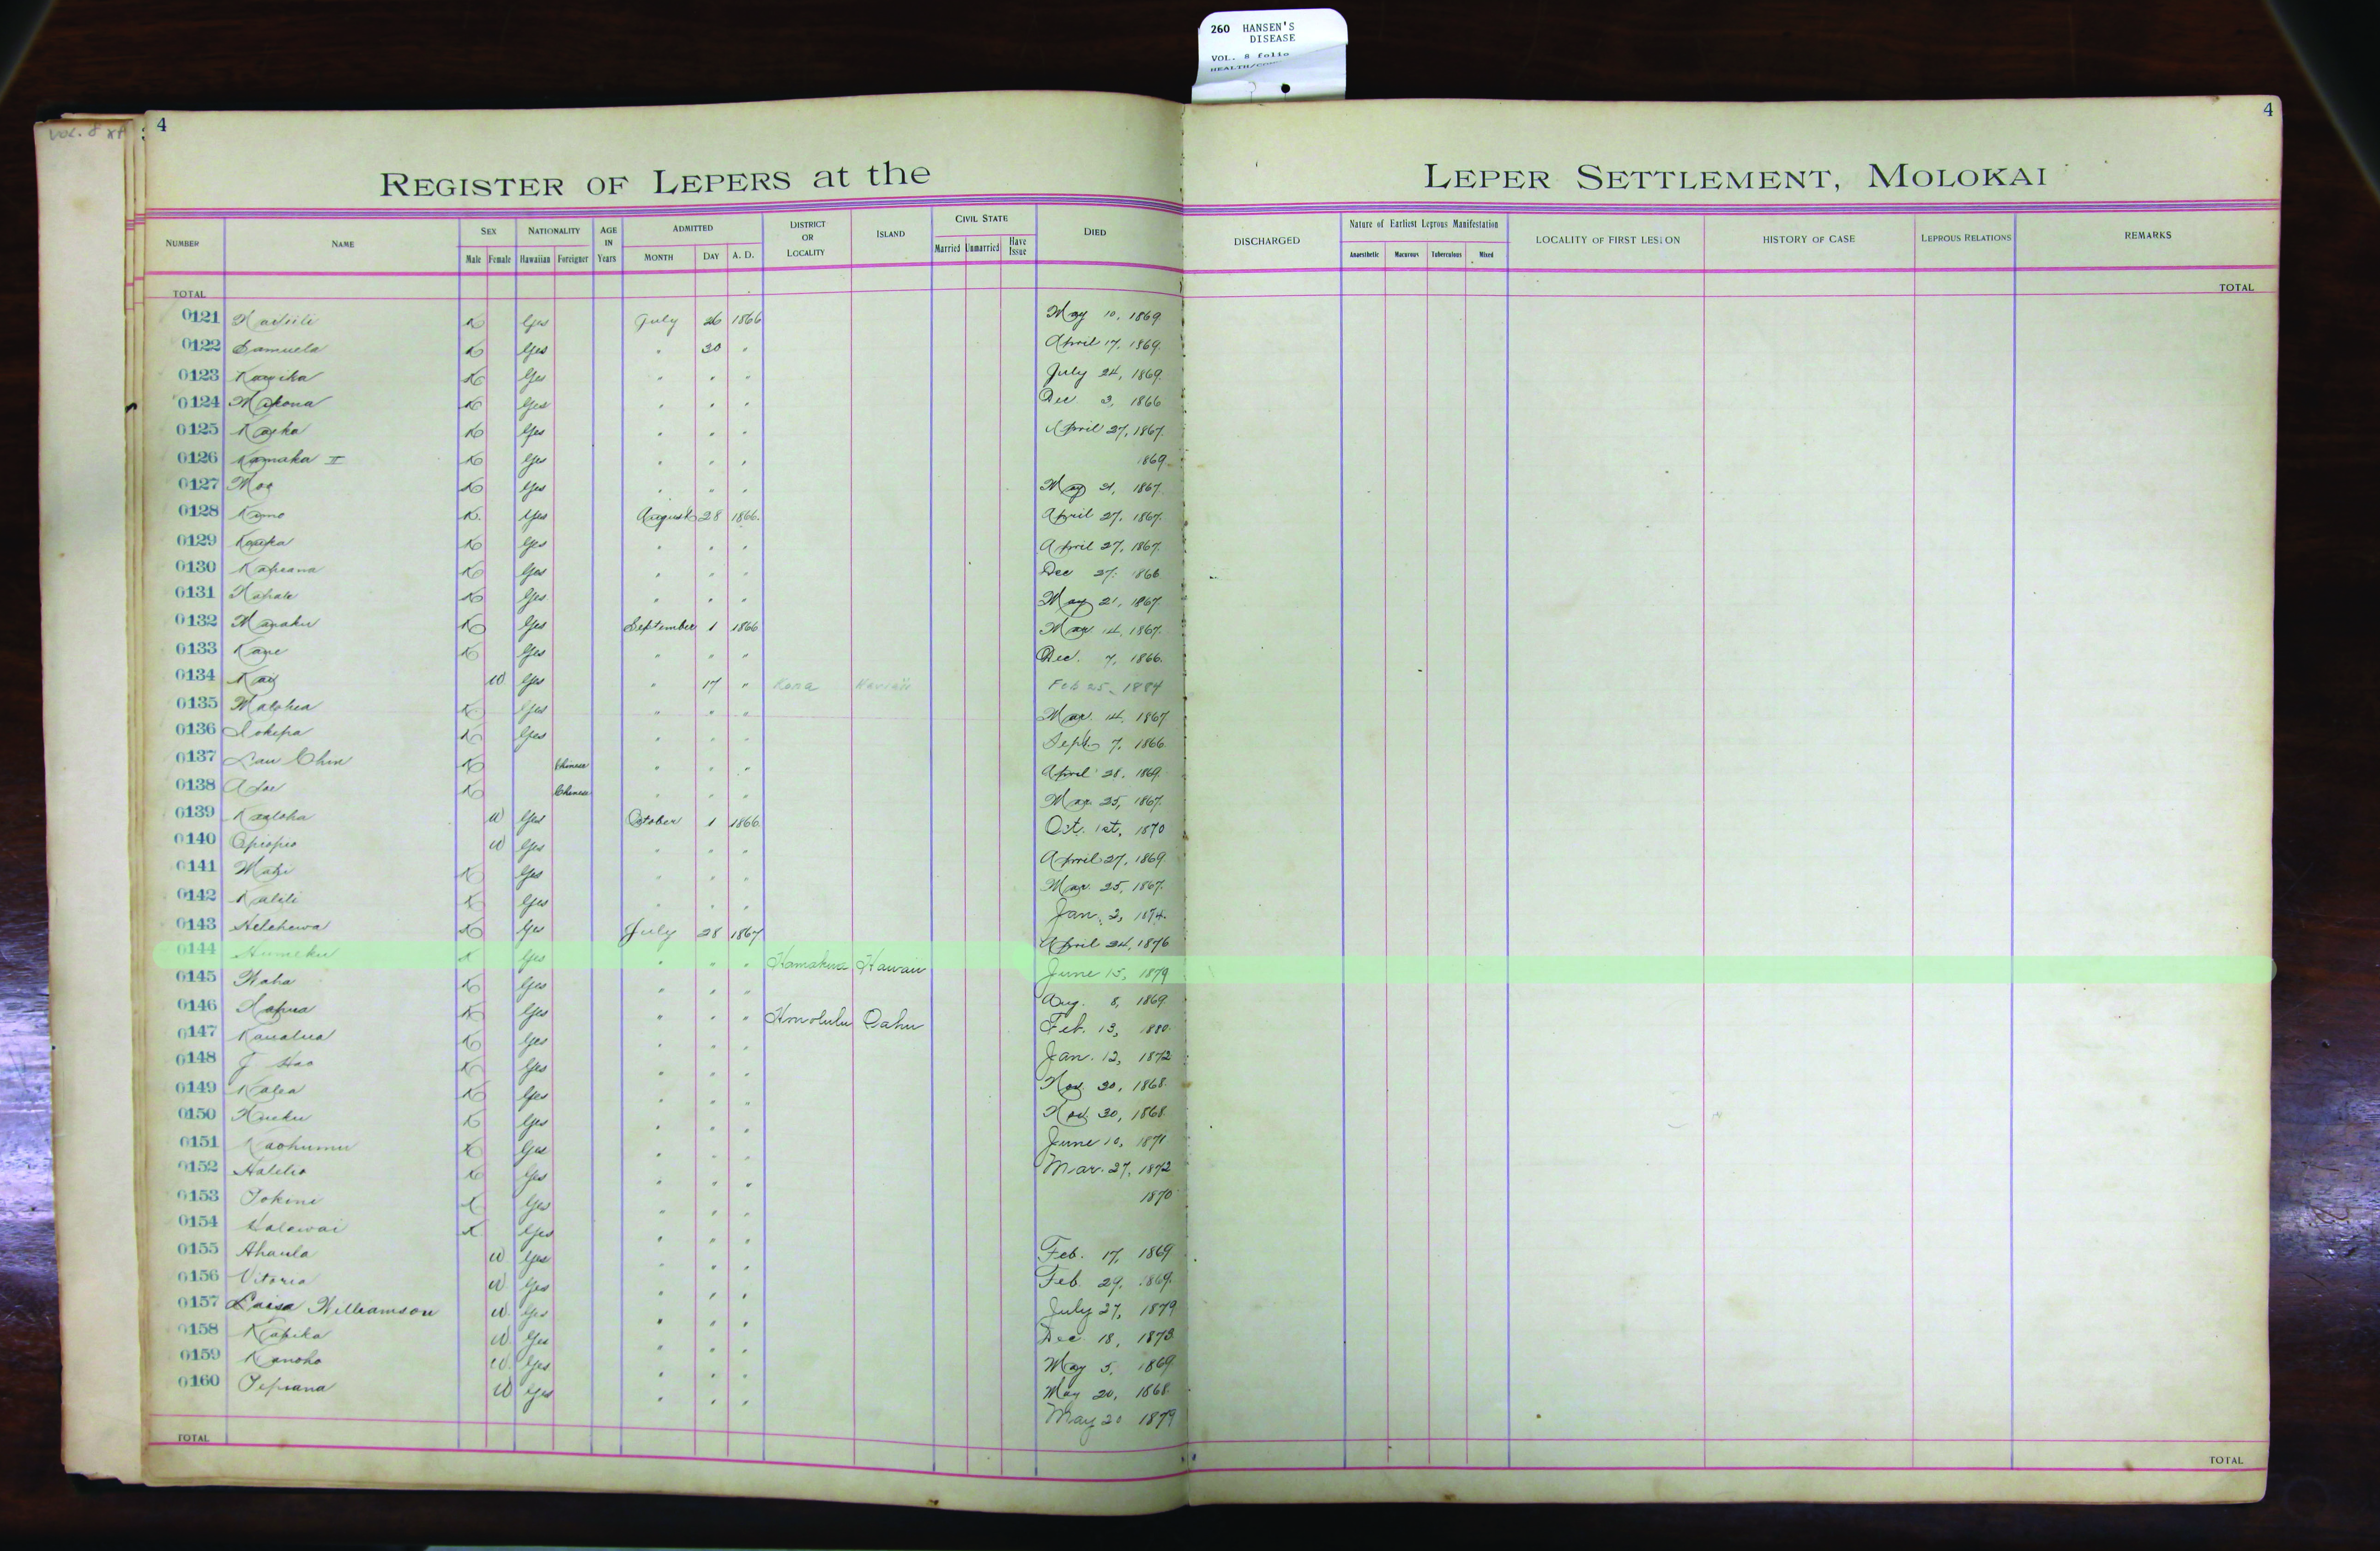 260 HANSEN'S
DISEASE
VOL. 8 folio
VOL. 8
4
4
REGISTER OF LEPERS at the LEPER SETTLEMENT, MOLOKAI
NUMBER NAME SEX NATIONALITY AGE IN Years ADMITTED DISTRICT OR LOCALITY ISLAND CIVIL STATE DIED DISCHARGED Nature of Earliest Leprous Manifestation LOCALITY OF FIRST LESION HISTORY OF CASE LEPROUS RELATIONS REMARKS
Male Female Hawaiian Foreigner MONTH DAY A. D. Married Unmarried Have Issue Anaesthetic Macurous Tuberculous Mixed
TOTAL TOTAL
0121 K Yes July 26 1866 May 10, 1869
0122 Samuela K Yes " 30 " April 17, 1869.
0123 K Yes " " " July 24, 1869.
0124 Makona K Yes " " " Dec. 3, 1866
0125 K Yes " " " April 27, 1867.
0126 Kamaka II K Yes " " " 1869
0127 Moa K Yes " " " May 21, 1867.
0128 K. Yes August 28 1866. April 27, 1867.
0129 K Yes " " " April 27, 1867.
0130 Kapeana K Yes " " " Dec 27. 1866
0131 K Yes " " " May 21, 1867.
0132 K Yes September 1 1866 Mar 14, 1867.
0133 K Yes " " " Dec. 7, 1866.
0134 W. Yes " 17 " Kona Hawaii Feb 25, 1884
0135 K Yes " " " Mar. 14, 1867
0136 Iokepa K Yes " " " Sept. 7, 1866
0137 Lau Chin K Chinese " " " April 28, 1869.
0138 K Chinese " " " Mar. 25, 1867.
0139 Kaaloha W Yes October 1 1866. Oct. 1st, 1870
0140 Opiopio W Yes " " " April 27, 1869.
0141 K Yes " " " Mar. 25, 1867.
0142 K Yes " " " Jan. 3, 1874.
0143 Helehewa K Yes July 28 1867 April 24, 1876
0144 Humeku K Yes " " " Hamakua Hawaii June 15, 1879
0145 K Yes " " " Aug. 8, 1869.
0146 K Yes " " " Honolulu Oahu Feb. 13, 1880.
0147 Kaualua K Yes " " " Jan. 12, 1872
0148 J Hao K Yes " " " Nov. 30, 1868.
0149 Kalea K Yes " " " Nov. 30, 1868.
0150 K Yes " " " June 10, 1871
0151 Kaohumu K Yes " " " Mar. 27, 1872
0152 K Yes " " " 1870
0153 K Yes " " "
0154 Kalawai K Yes " " "
0155 Ahaula W. Yes " " " Feb. 17, 1869
0156 Vitoria W Yes " " " Feb. 29, 1869.
0157 Luisa Williamson W. Yes " " " July 27, 1879
0158 Kapika W. Yes " " " Dec. 18, 1873.
0159 Kanoho W. Yes " " " May 5, 1869
0160 W Yes " " " May 20, 1868.
May 20 1879
TOTAL TOTAL